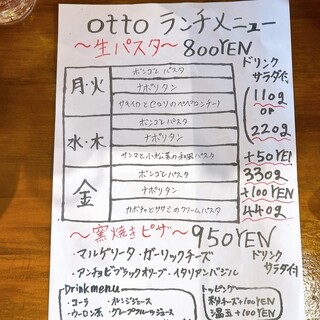 otto ランチメニュー
〜生パスタ〜 800YEN
ドリンク
サラダ付
110g
OR
220g
+50YEN
330g
+100YEN
440g
月・火
ボンゴレパスタ
ナポリタン
ペペロンチーノ
水・木
ボンゴレパスタ
ナポリタン
サンマと小松菜の和風パスタ
金
ボンゴレパスタ
ナポリタン
カボチャとササミのクリームパスタ
〜窯焼きピザ〜 950YEN
・マルゲリータ・ガーリックチーズ
・アンチョビブラックオリーブ・イタリアンバジル
ドリンク
サラダ付
Drink menu
・コーラ ・オレンジジュース
・ウーロン茶 ・グレープフルーツジュース
トッピング
粉チーズ+100YEN
温玉+100YEN